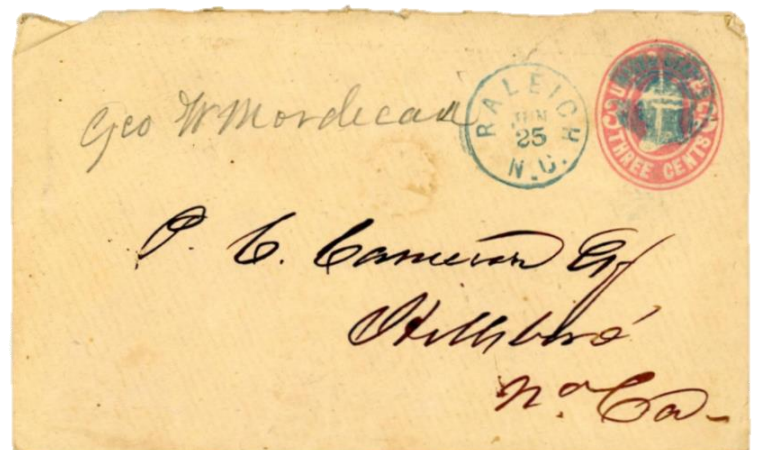 Geo W Mordecai
RALEIGH
JUN
25
N.C.
THREE CENTS
P. C. Cameron Esq
Hillsboro'
No. Ca-